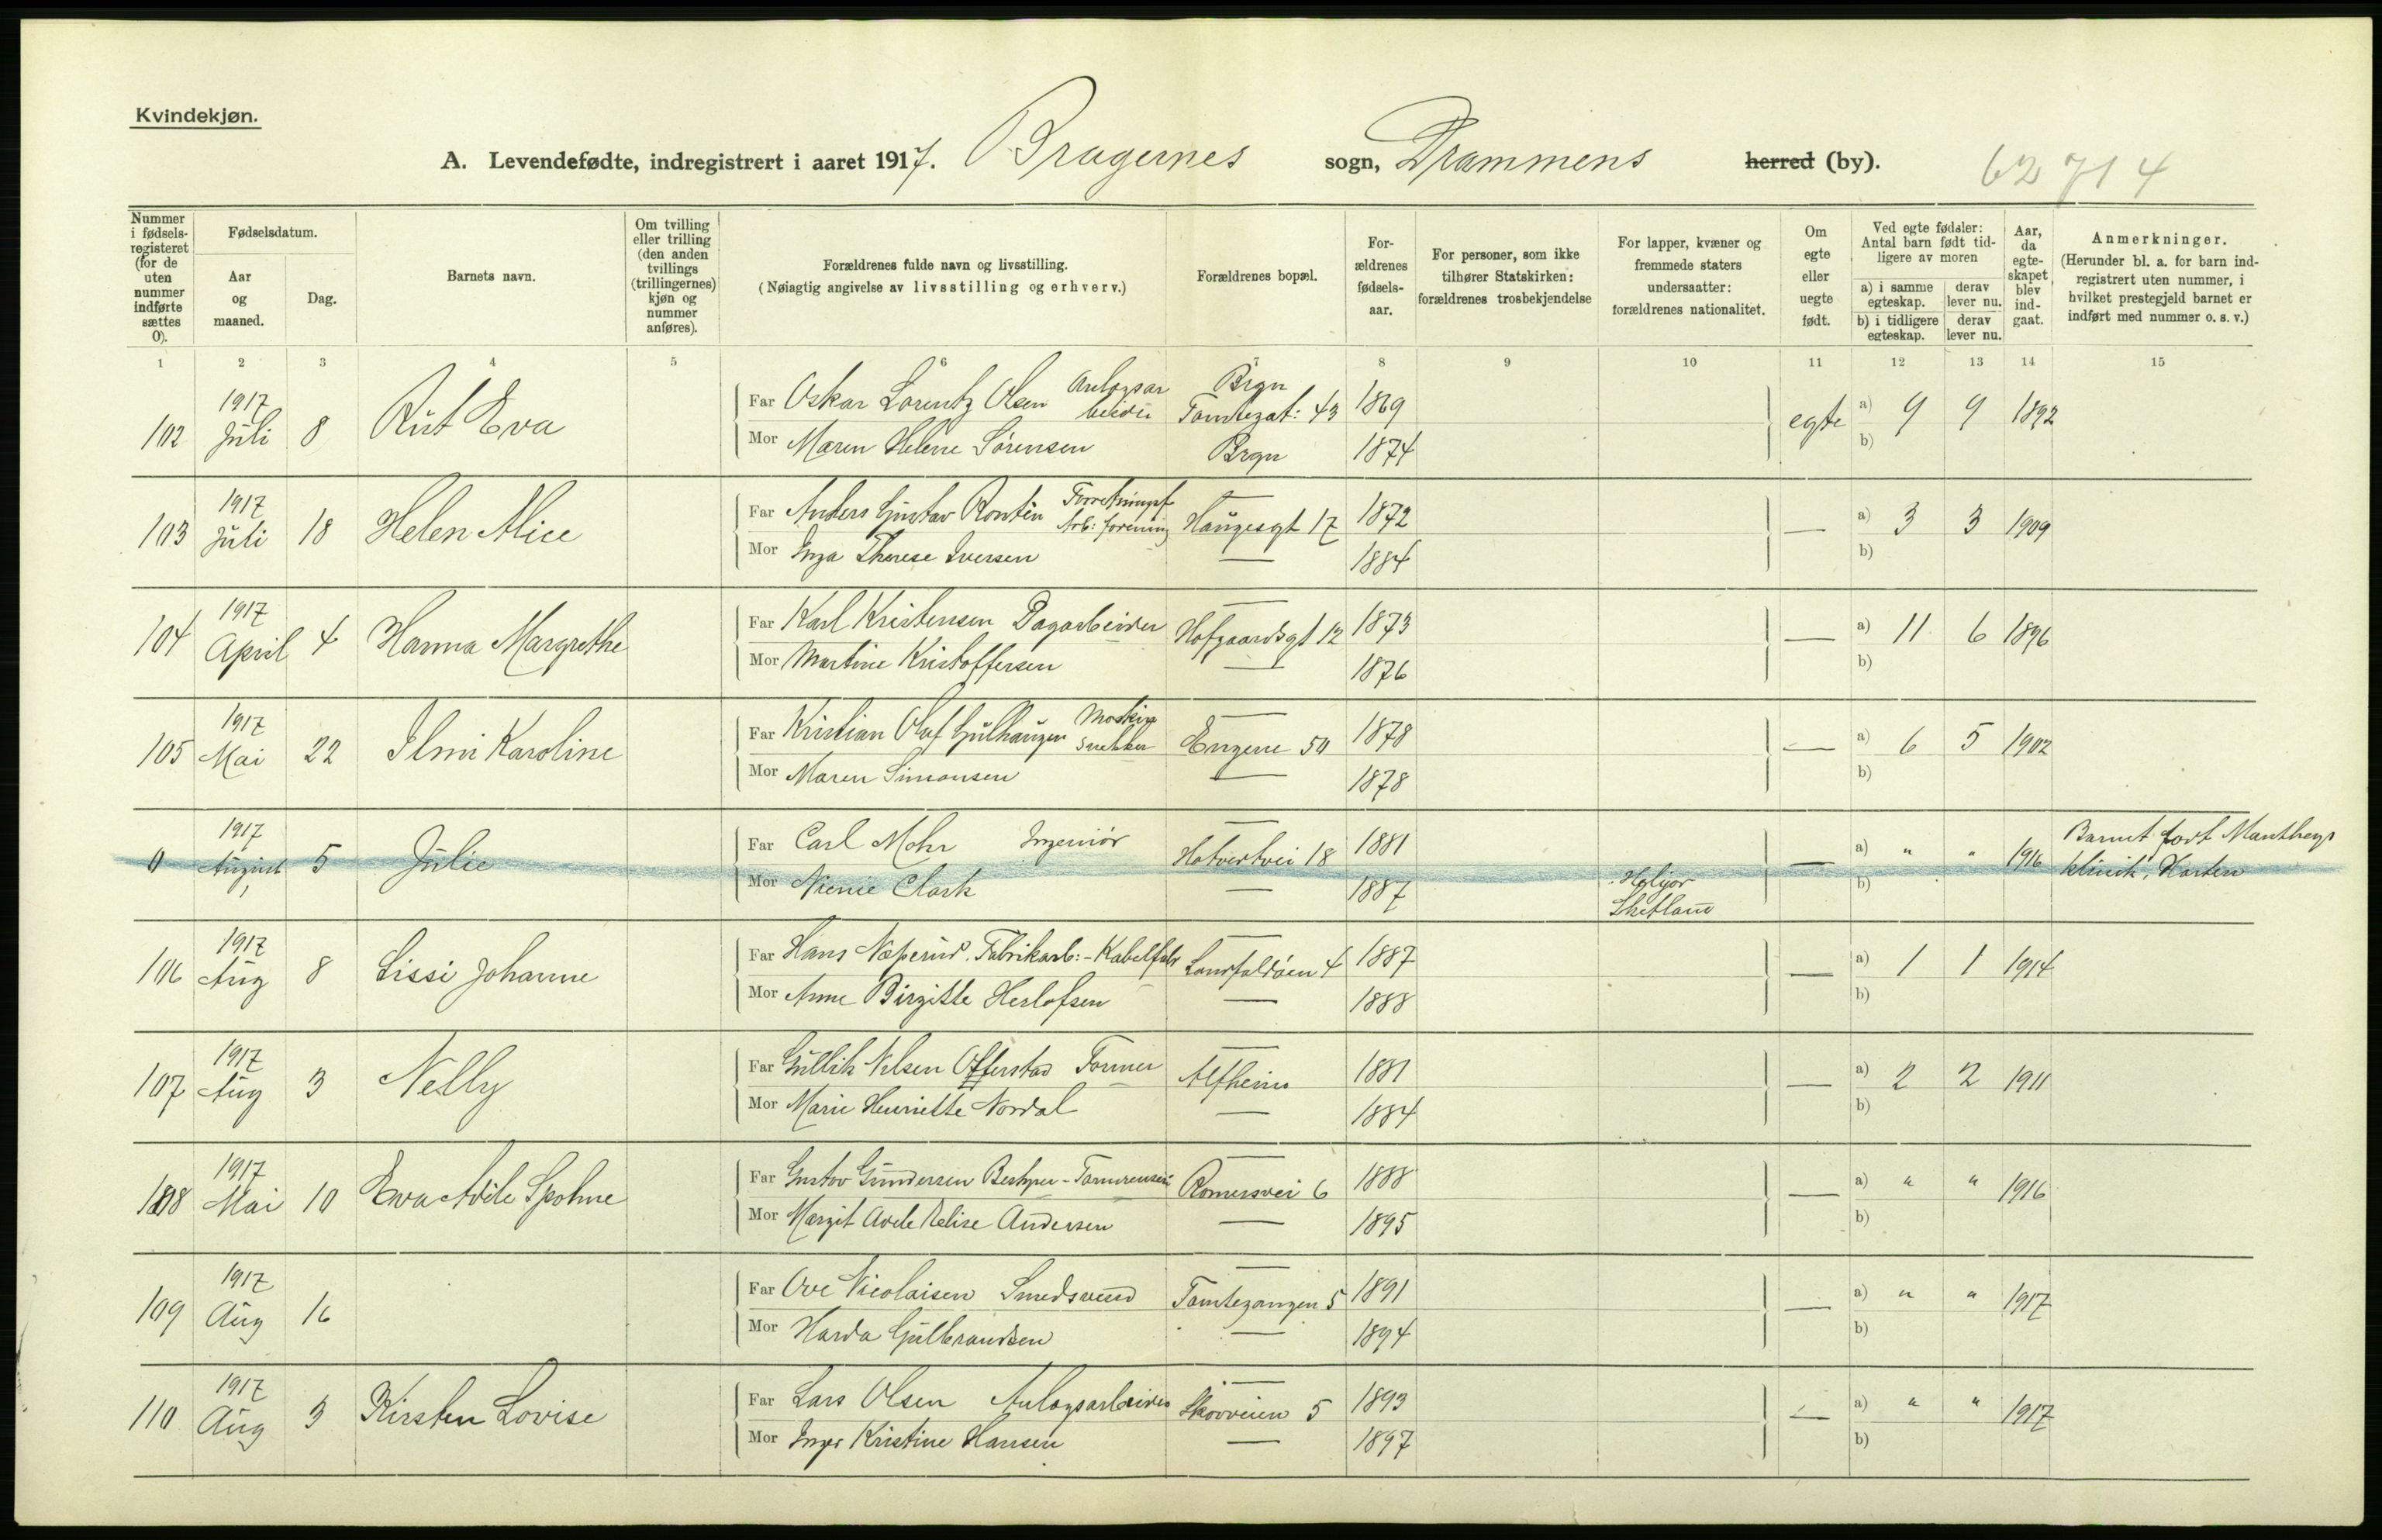 Kvindekjøn.
A. Levendefødte, indregistrert i aaret 1917. Bragernes sogn, Drammens herred (by). 62714
Nummer i fødselsregisteret (for de uten nummer indførte sættes 0).
Fødselsdatum.
Aar og maaned.
Dag.
Barnets navn.
Om tvilling eller trilling (den anden tvillings (trillingernes) kjøn og nummer anføres).
Forældrenes fulde navn og livsstilling.
(Nøiagtig angivelse av livsstilling og erhverv.)
Forældrenes bopæl.
Forældrenes fødselsaar.
For personer, som ikke tilhører Statskirken: forældrenes trosbekjendelse
For lapper, kvæner og fremmede staters undersaatter: forældrenes nationalitet.
Om egte eller uegte født.
Ved egte fødsler: Antal barn født tidligere av moren
a) i samme egteskap.
derav lever nu.
b) i tidligere egteskap.
derav lever nu.
Aar, da egteskapet blev indgaat.
Anmerkninger.
(Herunder bl. a. for barn indregistrert uten nummer, i hvilket prestegjeld barnet er indført med nummer o. s. v.)
1 2 3 4 5 6 7 8 9 10 11 12 13 14 15
102 1917 Juli 8 Rut Eva Far Oskar Lorentz Olsen Anlegsarbeider Brgn Tomtegat: 43 1869 egte a) 9 9 1892
Mor Maren Helene Sørensen Brgn 1874 b)
103 1917 Juli 18 Helen Alice Far Anders Gustav Rontin Arb: forening Haugesgt 17 1872 — a) 3 3 1909
Mor Inga Therese Iversen — 1884 b)
104 1917 April 4 Hanna Margrethe Far Karl Kristensen Dagarbeider Hofgaardsgt 12 1873 — a) 11 6 1896
Mor Martine Kristoffersen — 1876 b)
105 1917 Mai 22 Ilmi Karoline Far Kristian Olaf Gulhaugen Maskinsnekker Engene 50 1878 — a) 6 5 1902
Mor Maren Simonsen — 1878 b)
0 1917 August 5 Julie Far Carl Mohr Ingeniør Hotvedtvei 18 1881 — a) " " 1916 Barnet født Mantheys
Mor Nienie Clark — 1887 Shetland b) klinik, Horten
106 1917 Aug 8 Lissi Johanne Far Hans Næperud Fabrikarb:-Kabelfabr Landfaldøen 4 1887 — a) 1 1 1914
Mor Anne Birgitte Herlofsen — 1888 b)
107 1917 Aug 3 Nelly Far Gullik Nilsen Offerstad Former Alfheim 1881 — a) 2 2 1911
Mor Marie Henriette Nordal — 1884 b)
108 1917 Mai 10 Eva Adele Spohne Far Gustav Gundersen Romersvei 6 1888 — a) " " 1916
Mor Margit Adele Andersen — 1895 b)
109 1917 Aug 16 Far Ove Nicolaisen Smedsvend Tomtegangen 5 1891 — a) " " 1917
Mor Harda Gulbrandsen — 1894 b)
110 1917 Aug 3 Kirsten Lovise Far Lars Olsen Anlegsarbeider Skovveien 5 1893 — a) " " 1917
Mor Inger Kristine Hansen — 1897 b)